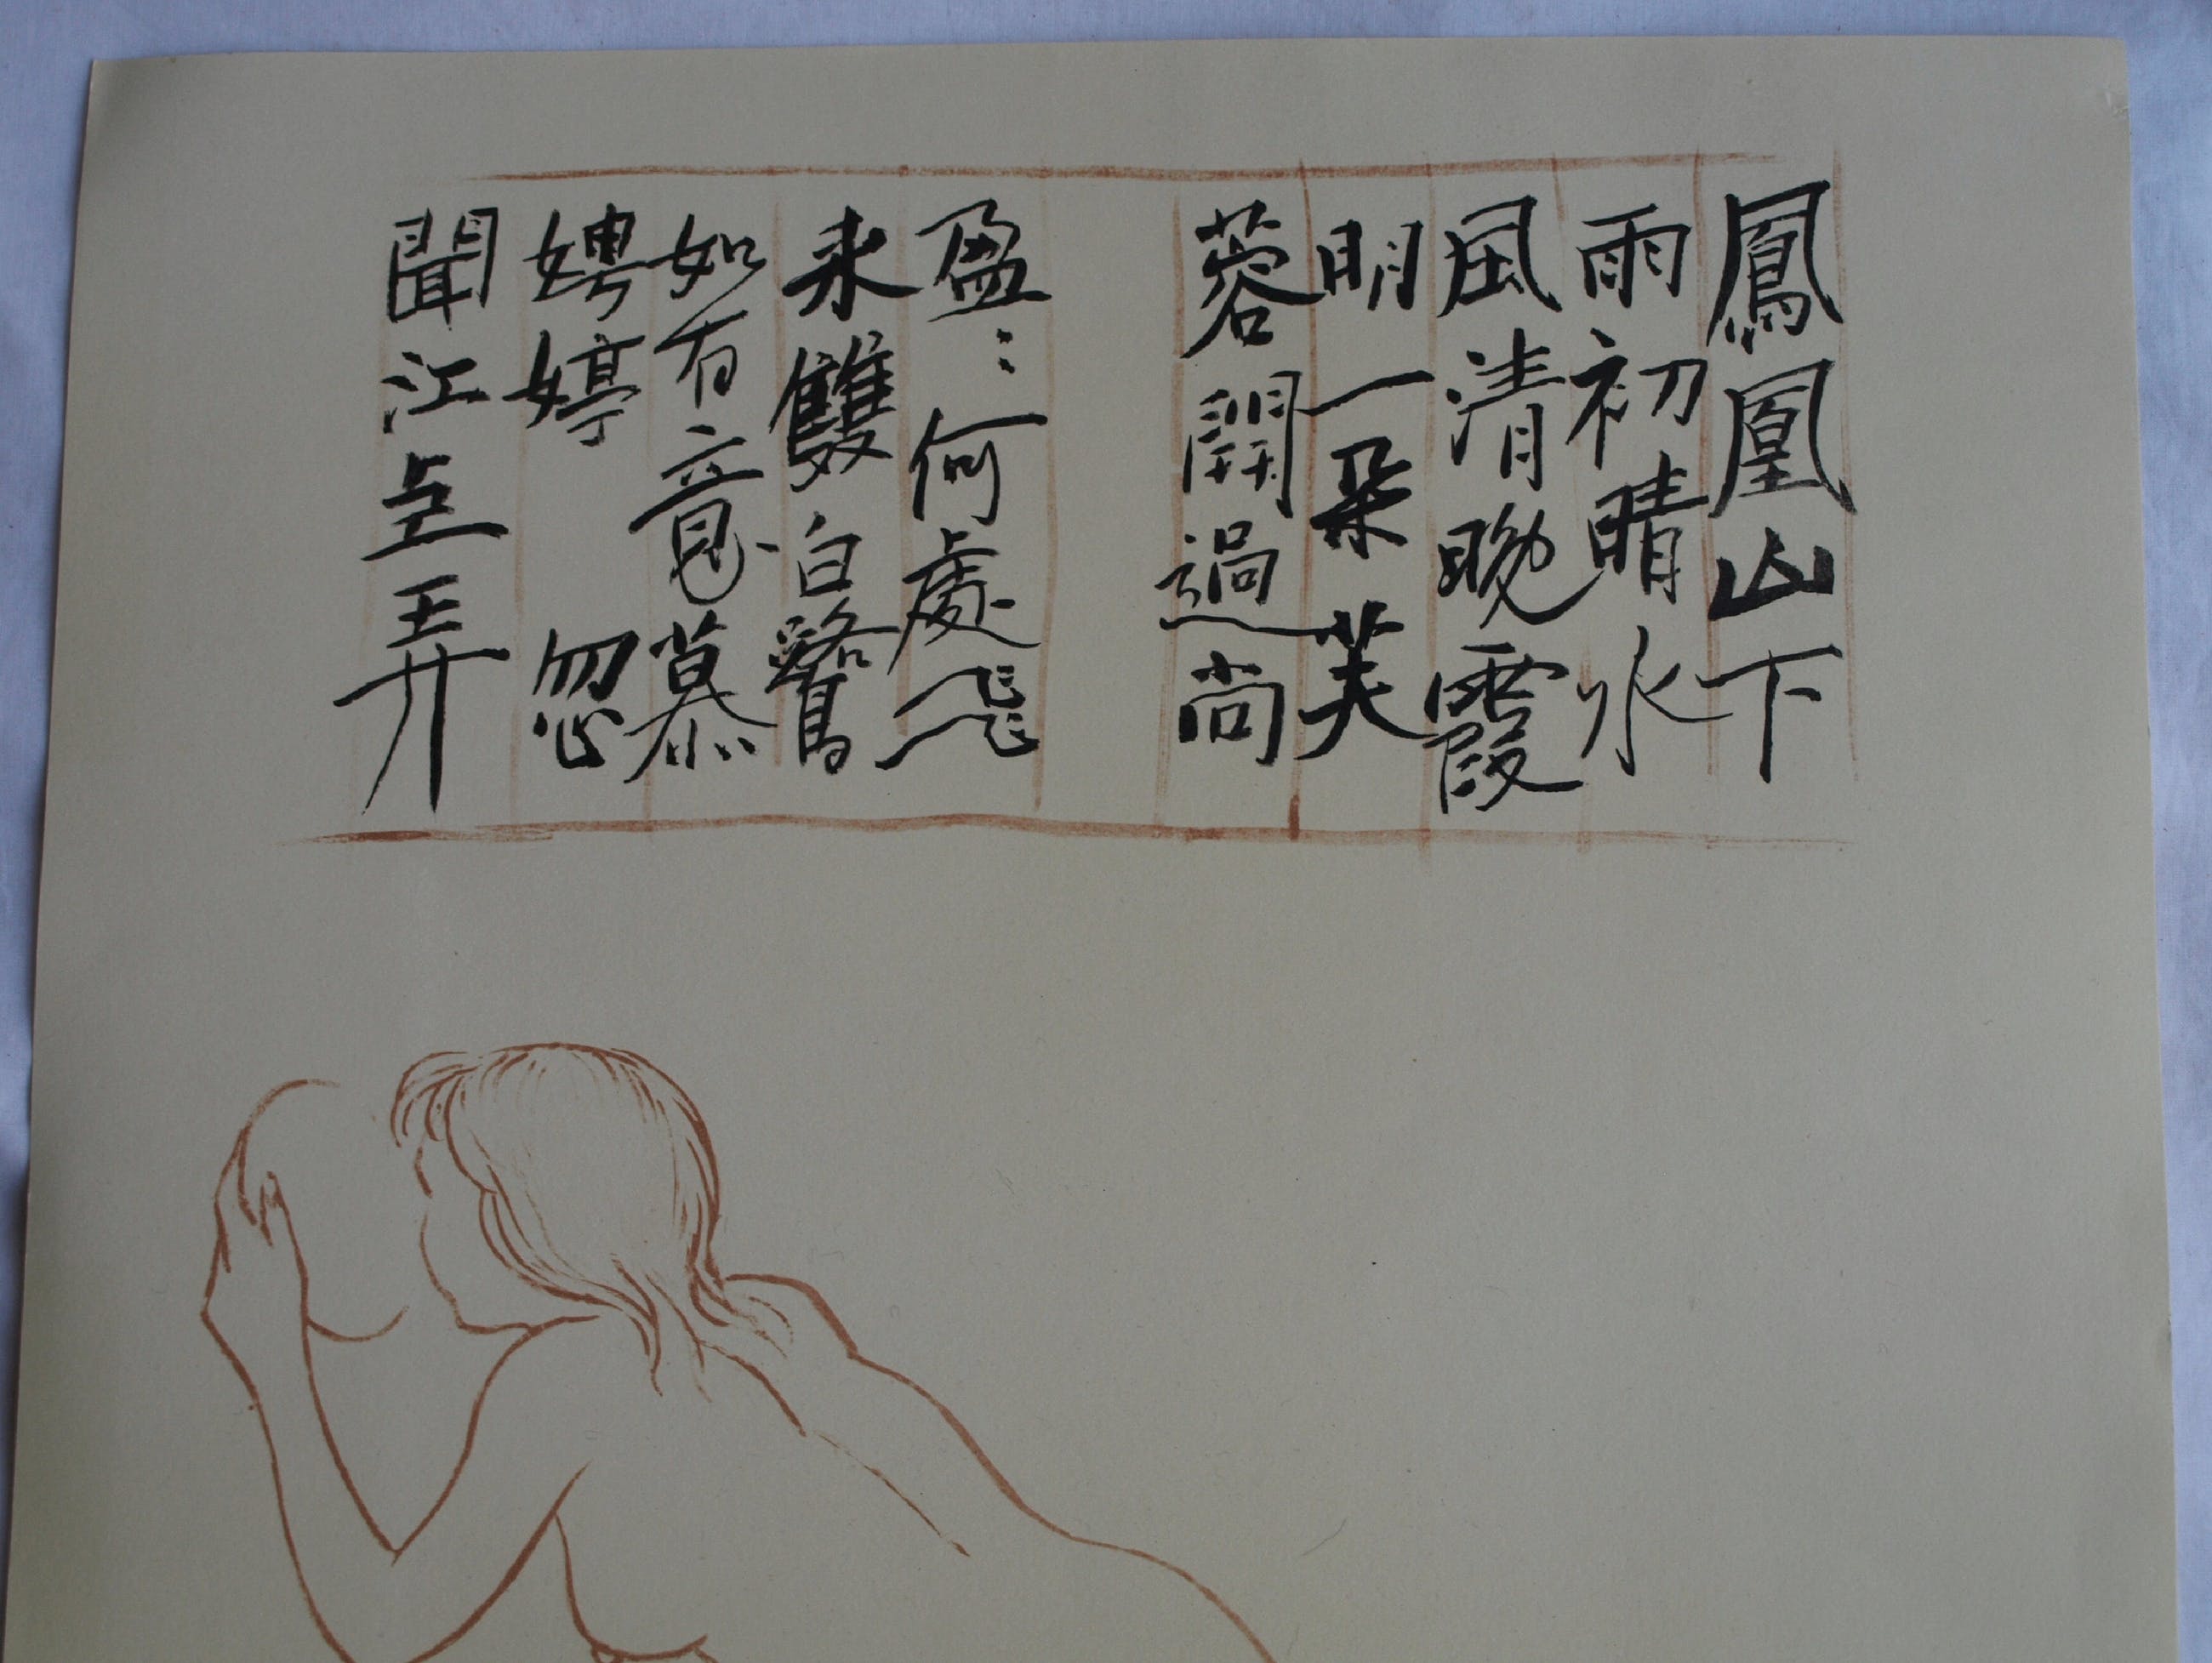 鳳凰山下
雨初晴水
風清晚霞
明一朵芙
蓉開過尚
盈〻何處飛
来雙白鷺
如有意慕
娉婷忽
聞江上弄